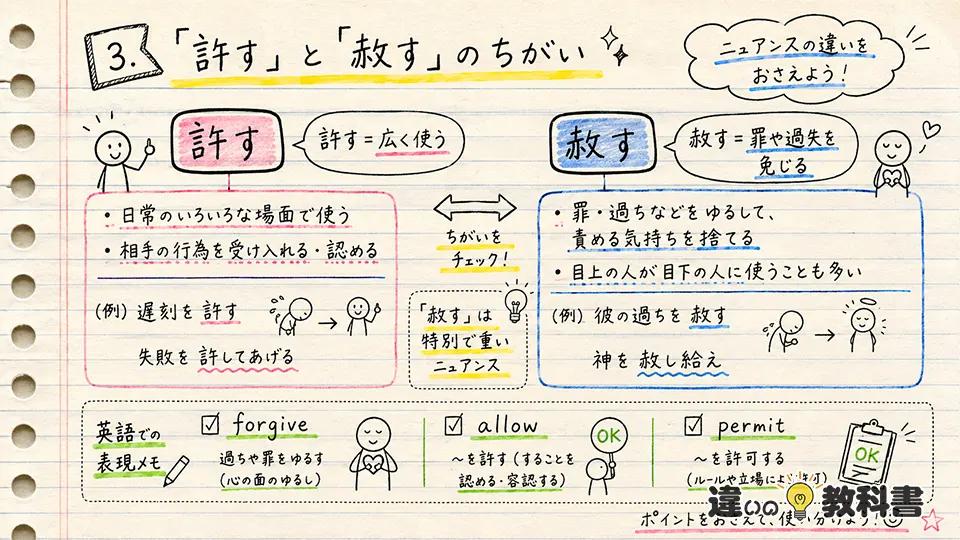 3. 「許す」と「赦す」のちがい
ニュアンスの違いを
おさえよう！
許す
許す＝広く使う
・日常のいろいろな場面で使う
・相手の行為を受け入れる・認める
(例) 遅刻を 許す
失敗を 許してあげる
ちがいを
チェック！
「赦す」は
特別で重い
ニュアンス
赦す
赦す＝罪や過失を
免じる
・罪・過ちなどをゆるして、
責める気持ちを捨てる
・目上の人が目下の人に使うことも多い
(例) 彼の過ちを 赦す
神を 赦し給え
英語での
表現メモ
forgive
過ちや罪をゆるす
(心の面のゆるし)
allow
～を許す (することを
認める・容認する)
OK
permit
～を許可する
(ルールや立場によ
OK
違いの教科書
ポイントをおさえて、使い分けよう！